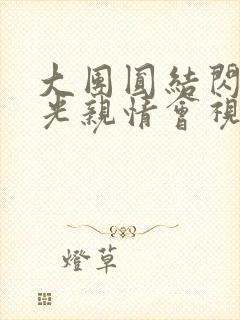 大團圓結閃
光親情會視
燈草